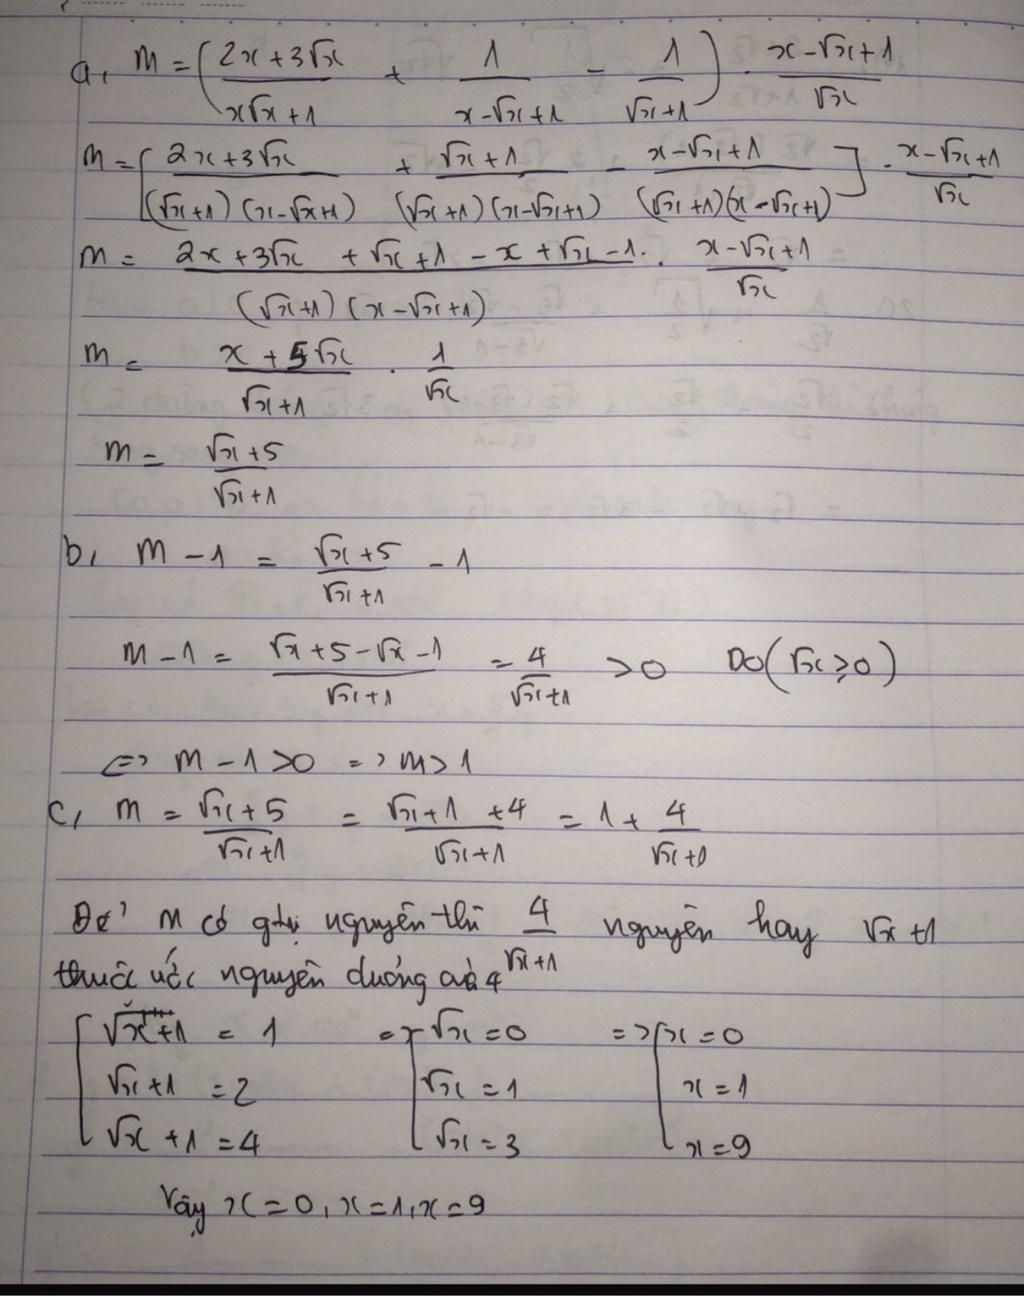 a, M = (2x+3√x / x√x+1 + 1 / x-√x+1 - 1 / √x+1) . x-√x+1 / √x
M = [2x+3√x / (√x+1)(x-√x+1) + √x+1 / (√x+1)(x-√x+1) - x-√x+1 / (√x+1)(x-√x+1)] . x-√x+1 / √x
M = 2x+3√x +√x+1 -x+√x-1 / (√x+1)(x-√x+1) . x-√x+1 / √x
M = x+5√x / √x+1 . 1 / √x
M = √x+5 / √x+1
b, M-1 = √x+5 / √x+1 - 1
M-1 = √x+5-√x-1 / √x+1 = 4 / √x+1 >0 Do(√x ≥ 0)
<=> M-1>0 => M>1
c, M = √x+5 / √x+1 = √x+1+4 / √x+1 = 1 + 4 / √x+1
Để M có gtrị nguyên thì 4 / √x+1 nguyên hay √x+1
thuộc ước nguyên dương của 4
[√x+1 = 1 => [√x=0 => [x=0
√x+1 = 2 √x=1 x=1
√x+1 = 4 √x=3 x=9
Vậy x=0, x=1, x=9